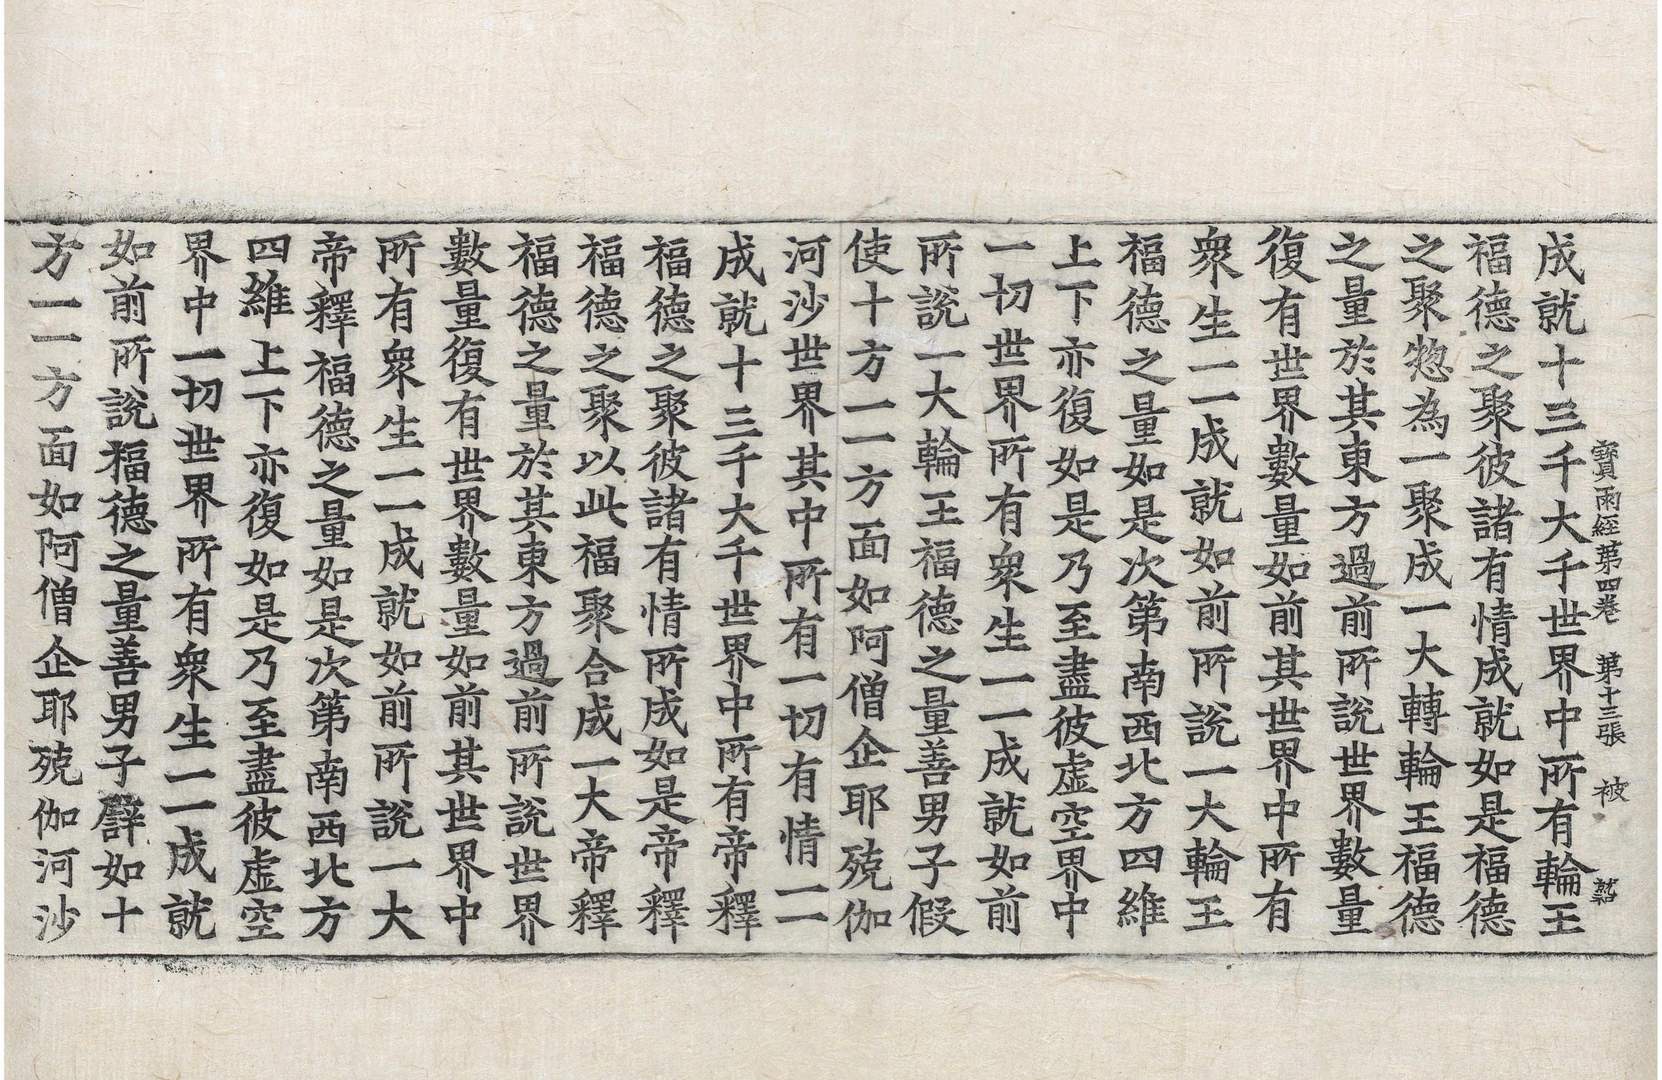 寶雨經第四卷 第十三張 被
成就十三千大千世界中所有輪王
福德之聚彼諸有情成就如是福德
之聚惣為一聚成一大轉輪王福德
之量於其東方過前所說世界數量
復有世界數量如前其世界中所有
衆生一一成就如前所說一大輪王
福德之量如是次第南西北方四維
上下亦復如是乃至盡彼虛空界中
一切世界所有衆生一一成就如前
所說一大輪王福德之量善男子假
使十方一一方面如阿僧企耶殑伽
河沙世界其中所有一切有情一一
成就十三千大千世界中所有帝釋
福德之聚彼諸有情所成如是帝釋
福德之聚以此福聚合成一大帝釋
福德之量於其東方過前所說世界
數量復有世界數量如前其世界中
所有衆生一一成就如前所說一大
帝釋福德之量如是次第南西北方
四維上下亦復如是乃至盡彼虛空
界中一切世界所有衆生一一成就
如前所說福德之量善男子譬如十
方一一方面如阿僧企耶殑伽河沙